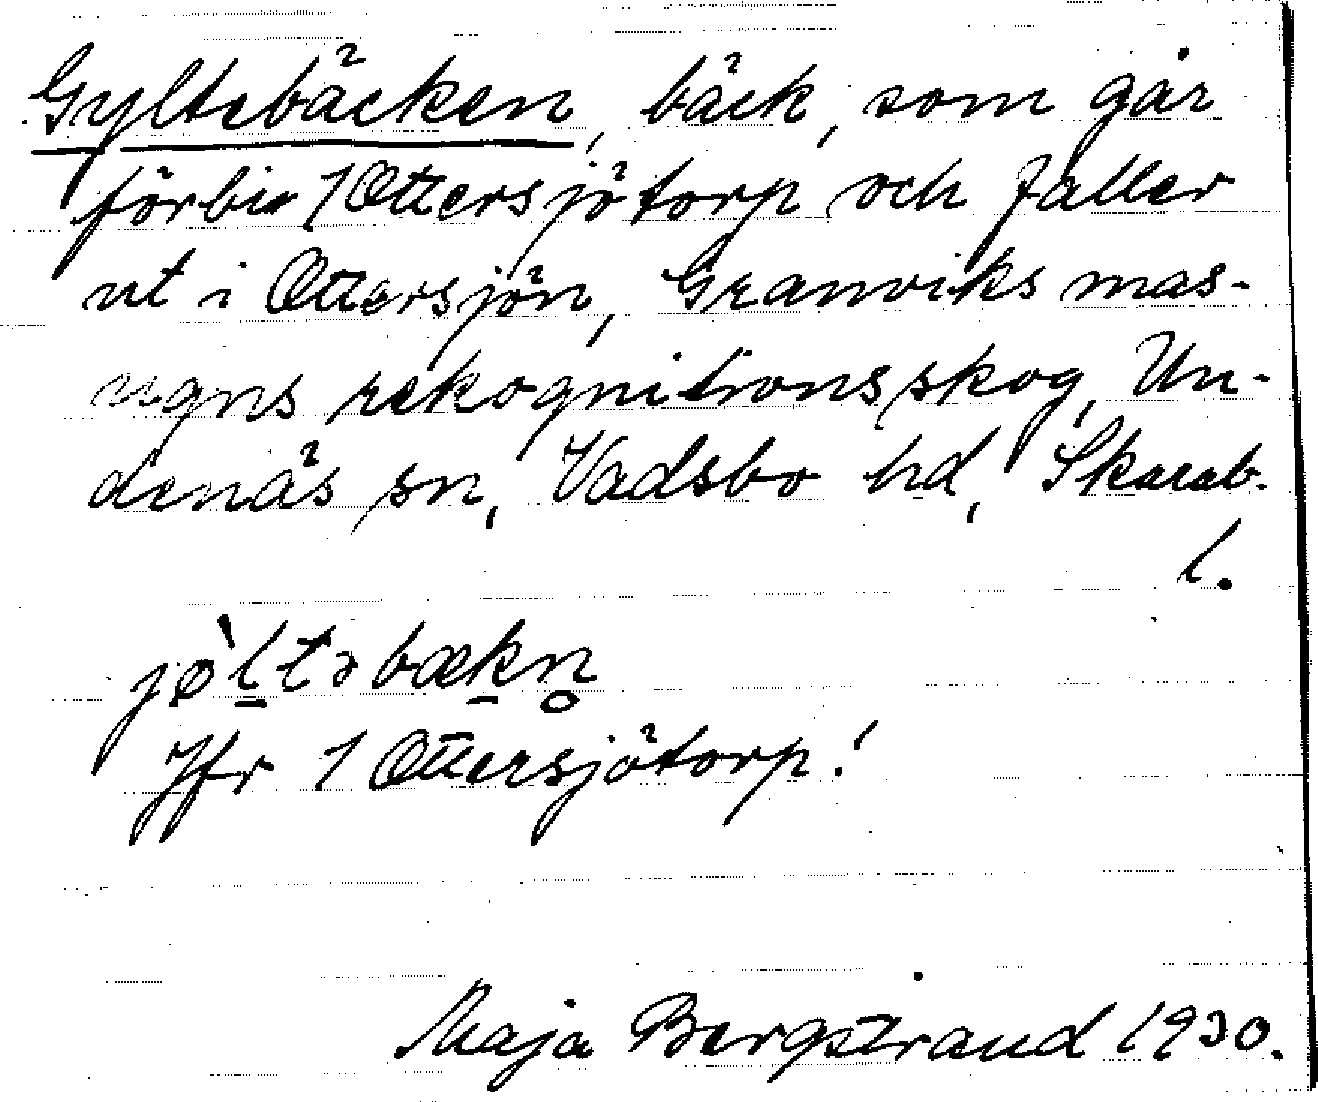 Gyltebäcken, bäck, som går
förbi 1 Ottersjötorp och faller
ut i Ottersjön, Granviks mas-
ugns rekognitionsskog, Un-
denäs sn, Vadsbo hd, Skarab.
l.
jø̀l̠təbæk̠n̥
Jfr 1 Ottersjötorp!
Maja Bergstrand 1930.